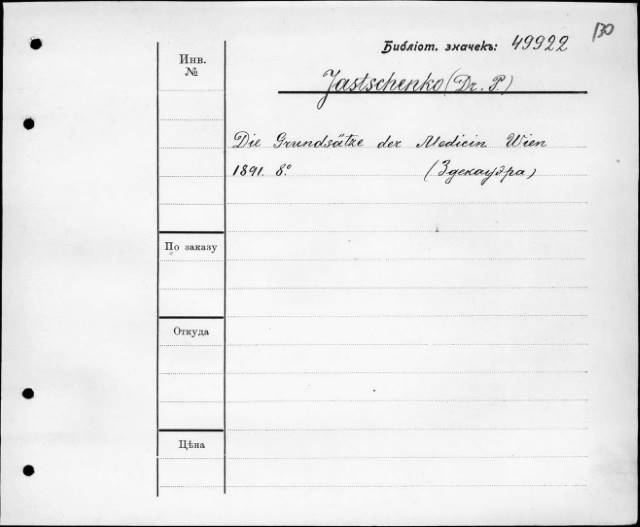 130
Библіот. значекъ: 49922
Инв.
№
Jastschenko (Dr. P.)
Die Grundsätze der Medicin. Wien
1891. 8.°
(Здекауэра)
По заказу
Откуда
Цѣна